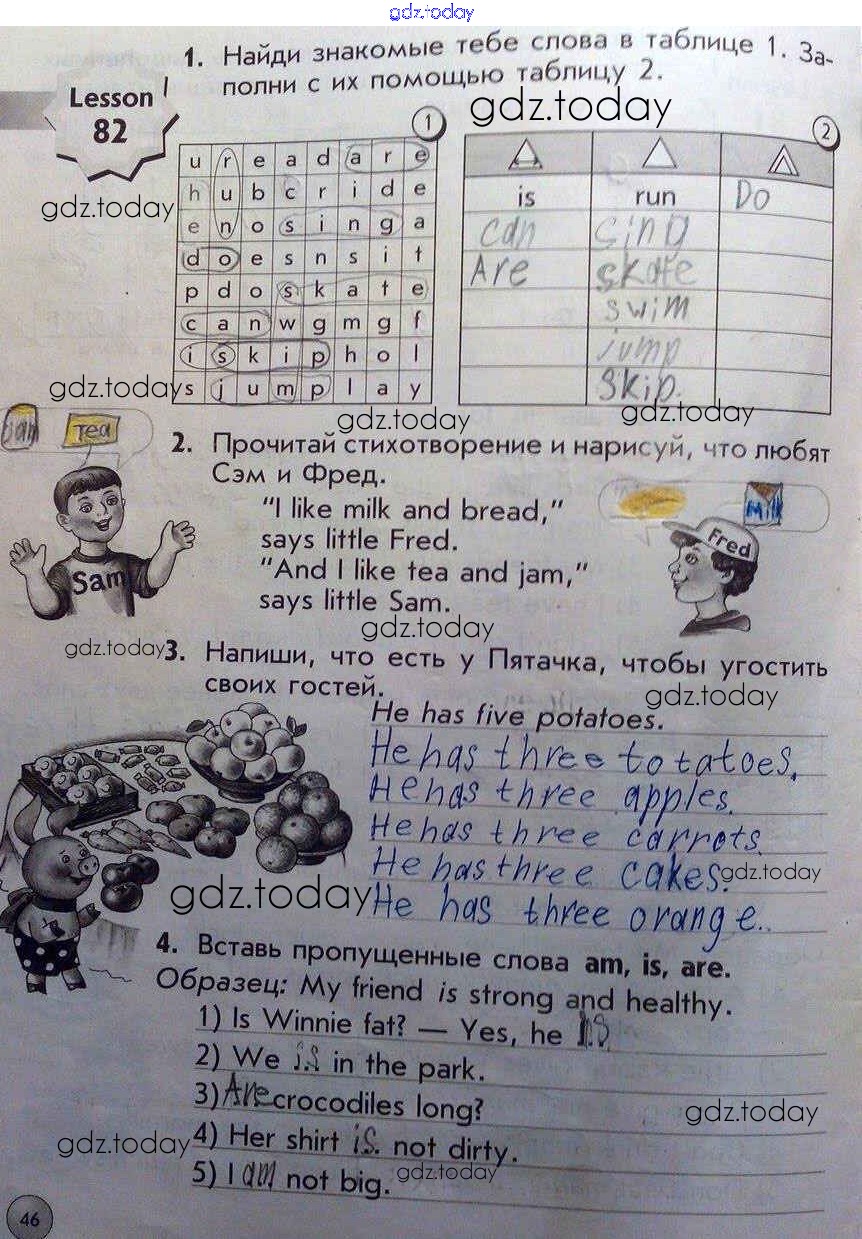 gdz.today
1. Найди знакомые тебе слова в таблице 1. За-
полни с их помощью таблицу 2.
Lesson
82
gdz.today
1
2
u r e a d a r e
h u b c r i d e
e n o s i n g a
d o e s n s i t
p d o s k a t e
c a n w g m g f
i s k i p h o l
s j u m p l a y
is run Do
can sing
Are skate
swim
jump
Skip.
gdz.today
gdz.today
gdz.today
gdz.today
Jam Tea
2. Прочитай стихотворение и нарисуй, что любят
Сэм и Фред.
"I like milk and bread,"
says little Fred.
"And I like tea and jam,"
says little Sam.
Sam
Milk
Fred
gdz.today
gdz.today
3. Напиши, что есть у Пятачка, чтобы угостить
своих гостей.
gdz.today
He has five potatoes.
He has three totatoes.
He has three apples.
He has three carrots.
He has three cakes.
gdz.today
gdz.today
He has three orange.
4. Вставь пропущенные слова am, is, are.
Образец: My friend is strong and healthy.
1) Is Winnie fat? — Yes, he is
2) We is in the park.
3) Are crocodiles long?
gdz.today
4) Her shirt is not dirty.
gdz.today
5) I am not big.
gdz.today
46